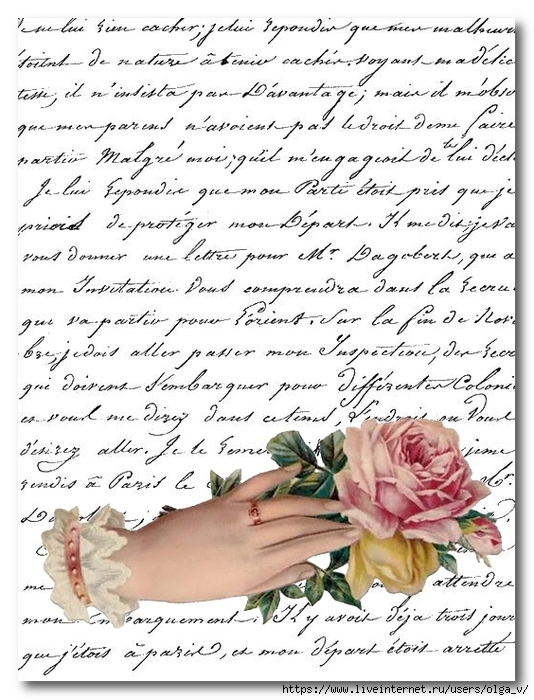 ne lui rien cacher; je lui repondis que mes malheurs
étoient de nature à tenir cachés voyant ma délica
tesse, il n'insista pas Davantage; mais il m'obse
que mes parens n'avoient pas le droit de me faire
partir Malgré moi; qu'il m'engageoit de te lui décla
Je lui repondis que mon Parti étoit pris que je
priois de protéger mon Départ. Il me dit; je va
vous donner une lettre pour Mr. Dagobert, que a
mon Invitation Vous comprendra dans la Recrue
qui va partir pour L'orient. Sur la fin de Nov
bre; je dois aller passer mon Inspection, des Recr
qui doivent S'embarquer pour différentes Coloni
es vous me direz dans ce tems, L'endroit ou Vous
désirez aller. Je le
rendis à Paris le
me attendre
mon embarquement. Il y avoit déja trois jour
que j'étois à paris, et mon départ étoit arretté
https://www.liveinternet.ru/users/olga_v/